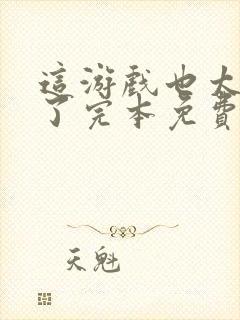 這游戲也太
了完本免費
天魁